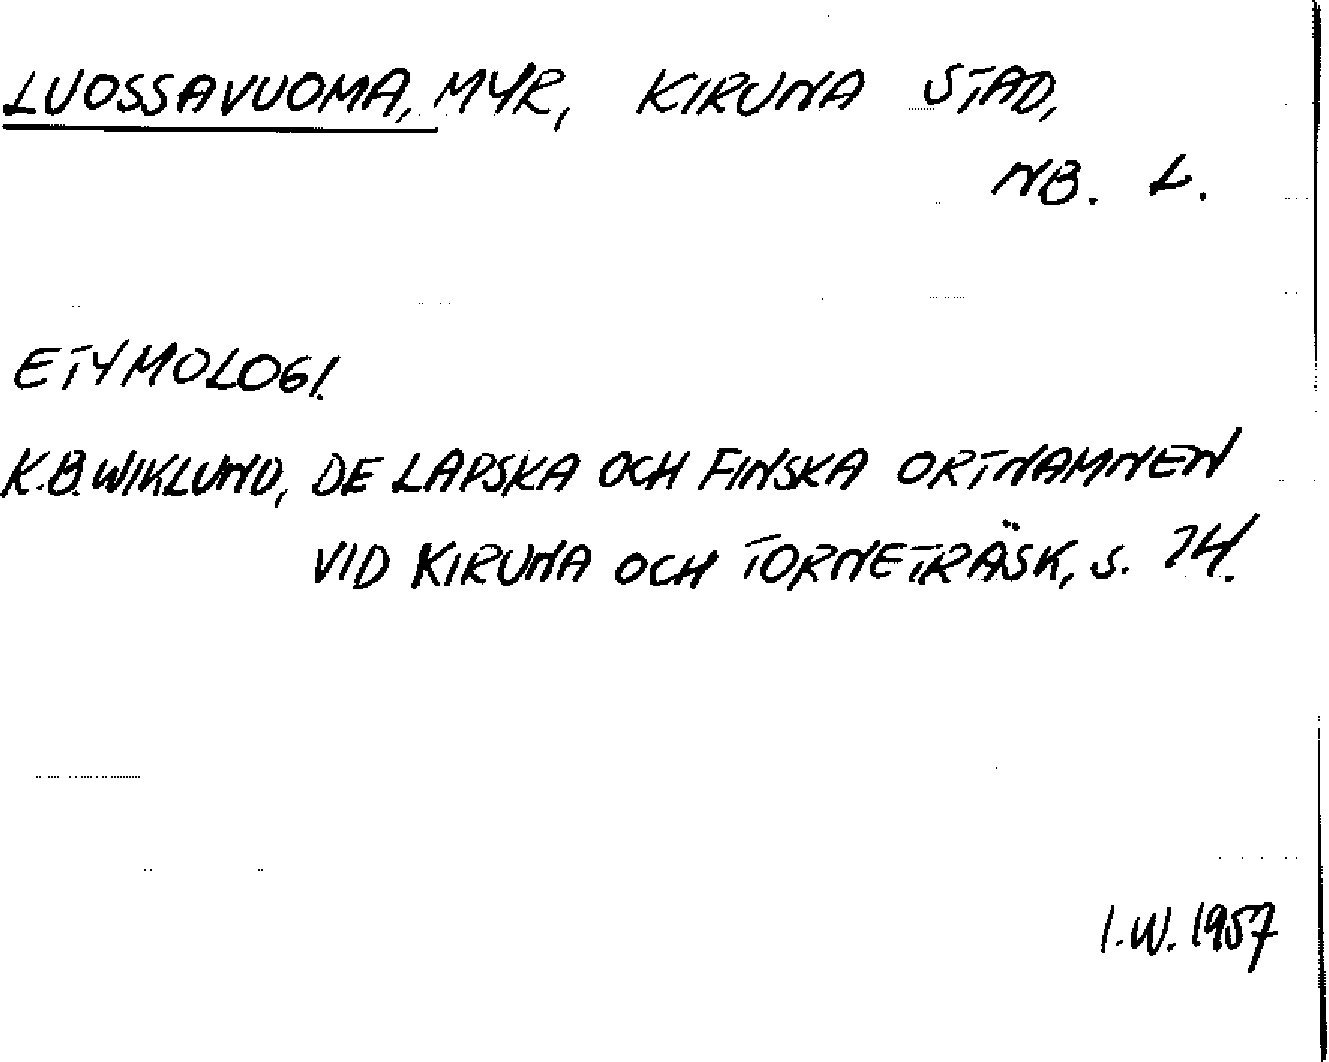 LUOSSAVUOMA, MYR, KIRUNA STAD,
NB. L.
ETYMOLOGI.
K.B. WIKLUND, DE LAPSKA OCH FINSKA ORTNAMNEN
VID KIRUNA OCH TORNETRÄSK, S. 14.
I.W. 1957